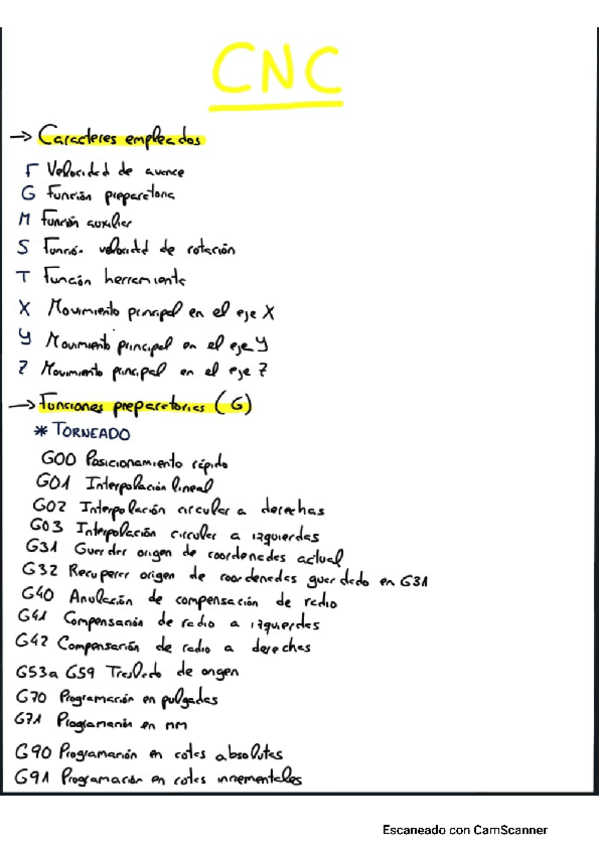 CNC
→ Caracteres empleados
F Velocidad de avance
G Función preparatoria
M Función auxiliar
S Función velocidad de rotación
T Función herramienta
X Movimiento principal en el eje X
Y Movimiento principal en el eje Y
Z Movimiento principal en el eje Z
→ Funciones preparatorias (G)
* TORNEADO
G00 Posicionamiento rápido
G01 Interpolación lineal
G02 Interpolación circular a derechas
G03 Interpolación circular a izquierdas
G31 Guardar origen de coordenadas actual
G32 Recuperar origen de coordenadas guardado en G31
G40 Anulación de compensación de radio
G41 Compensación de radio a izquierdas
G42 Compensación de radio a derechas
G53 a G59 Traslado de origen
G70 Programación en pulgadas
G71 Programación en mm
G90 Programación en cotas absolutas
G91 Programación en cotas incrementales
Escaneado con CamScanner